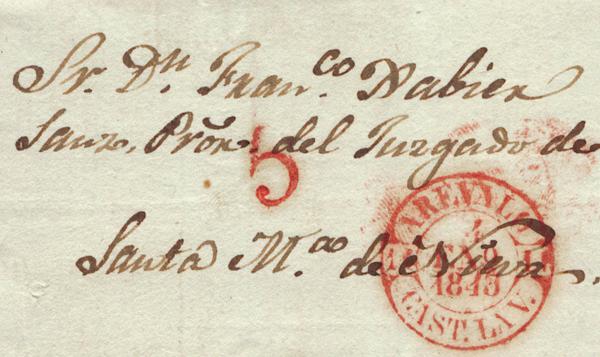 Sr. Dn. Franco. Xabier
Sanz, Prõr. del Juzgado de
5
Santa Ma. de Nieva.
AREVALO
4
ENE
1845
CAST. LA V.